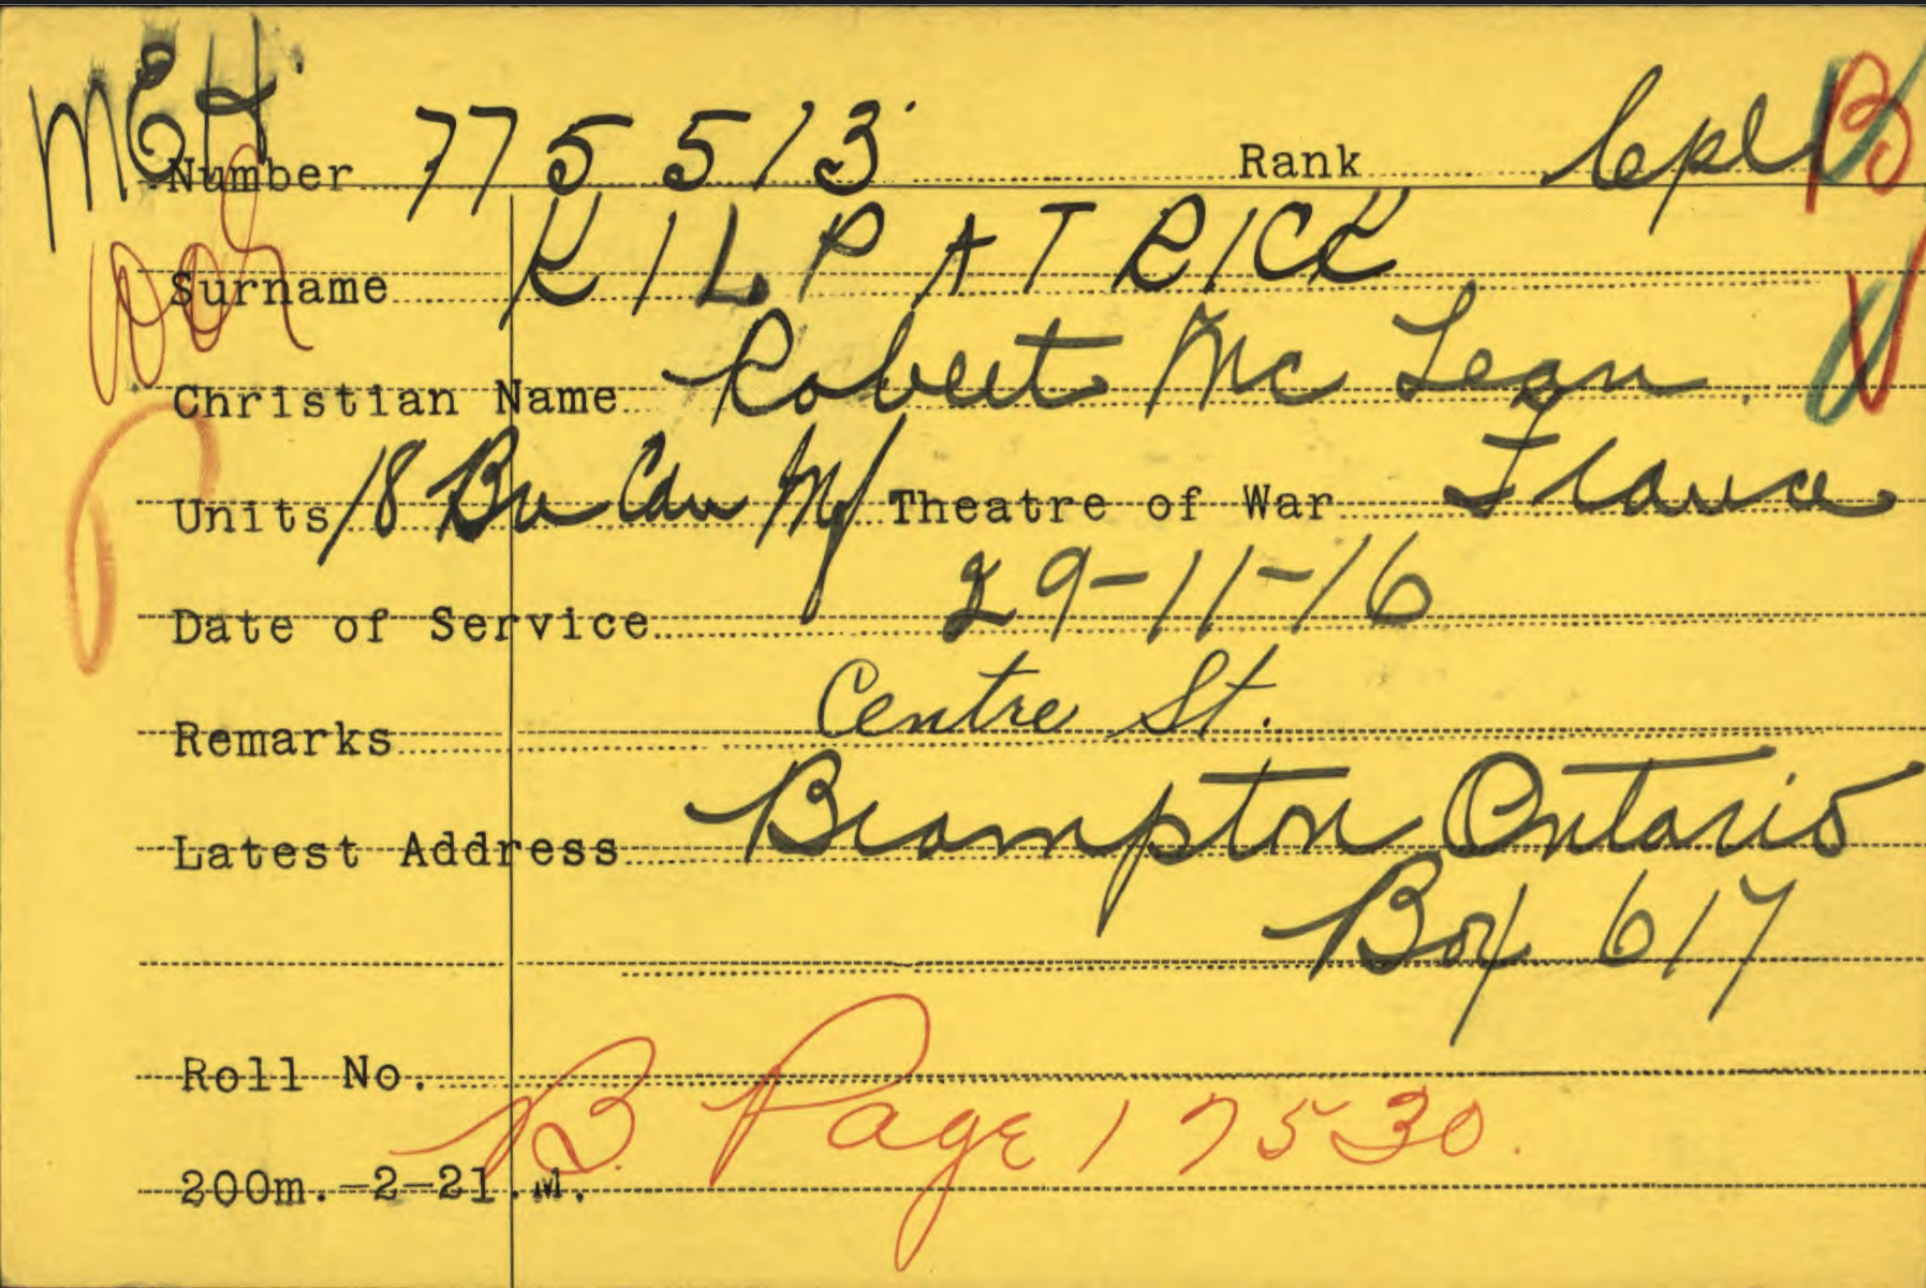 MEH.
Number 775513 Rank Cpl B
Surname KILPATRICK
Christian Name Robert McLean
Units 18 Bn Can Inf Theatre of War France
Date of Service 29-11-16
Remarks Centre St.
Latest Address Brampton Ontario
Box 617
Roll No.
B Page 17530.
200m.-2-21.M.